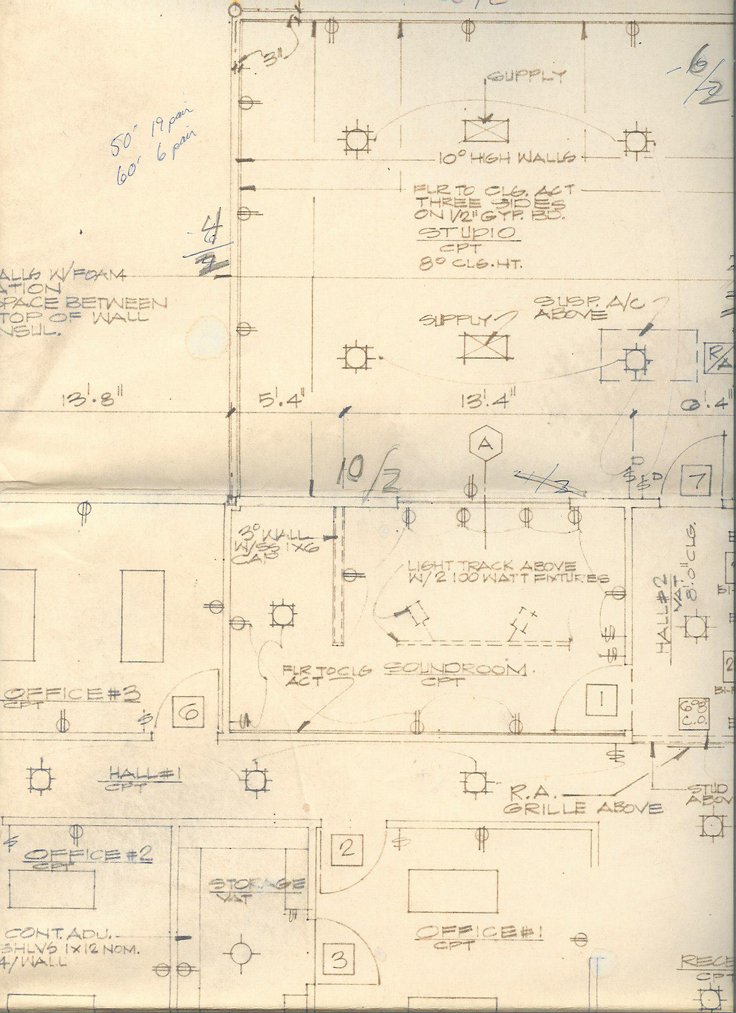 3"
SUPPLY
6/2
50' 19 pair
60' 6 pair
10° HIGH WALLS
FLR TO CLG. ACT
THREE SIDES
ON 1/2" GYP. BD.
STUDIO
CPT
8° CLG. HT.
4/2
ALLS W/FOAM
ATION
SPACE BETWEEN
TOP OF WALL
NSUL.
SUPPLY
SUSP. A/C
ABOVE
R/A
13'-8"
5'-4"
13'-4"
A
10/2
7
3° WALL
W/SS 1X6
CAP
LIGHT TRACK ABOVE
W/2 100 WATT FIXTURES
HALL #2
VAT
8'-0" CLG.
FLR TO CLG
ACT
SOUNDROOM
CPT
OFFICE #3
CPT
6
1
6°8°
C.O.
HALL #1
CPT
R.A.
GRILLE ABOVE
STUD
ABOV
OFFICE #2
CPT
2
STORAGE
VAT
CONT. ADJ.
SHLVS 1X12 NOM.
4/WALL
3
OFFICE #1
CPT
RECE
CPT